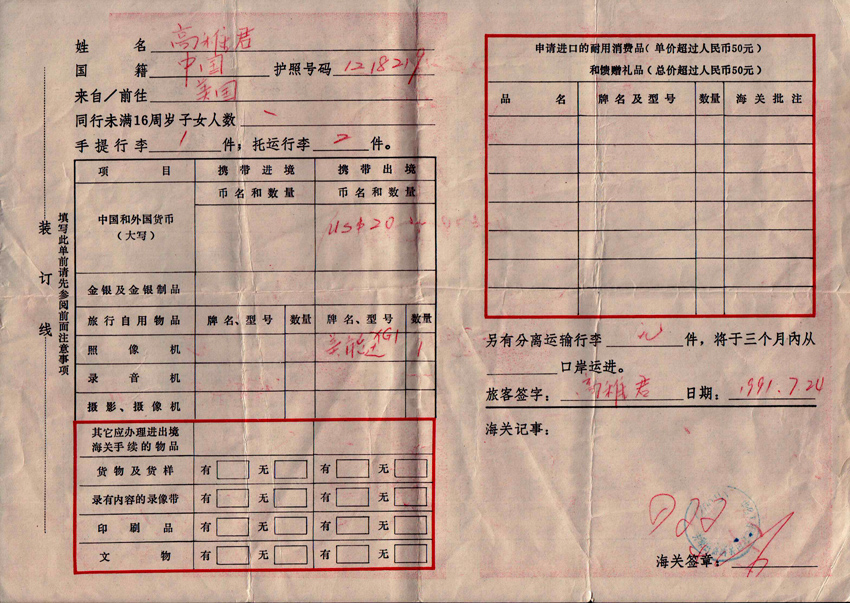 姓 名 高雅君
国 籍 中国 护照号码 1218219
来自／前往 美国
同行未满16周岁子女人数
手提行李 1 件；托运行李 2 件。
装订线
填写此单前请先参阅前面注意事项
项 目 携带进境 携带出境
币名和数量 币名和数量
中国和外国货币
（大写）
US$20
金银及金银制品
旅行自用物品 牌名、型号 数量 牌名、型号 数量
照 像 机 1
录 音 机
摄影、摄像机
其它应办理进出境
海关手续的物品
货物及货样 有 无 有 无
录有内容的录像带 有 无 有 无
印 刷 品 有 无 有 无
文 物 有 无 有 无
申请进口的耐用消费品（单价超过人民币50元）
和馈赠礼品（总价超过人民币50元）
品 名 牌名及型号 数量 海关批注
另有分离运输行李 件，将于三个月内从
口岸运进。
旅客签字： 高雅君 日期： 1991.7.24
海关记事：
海关签章：